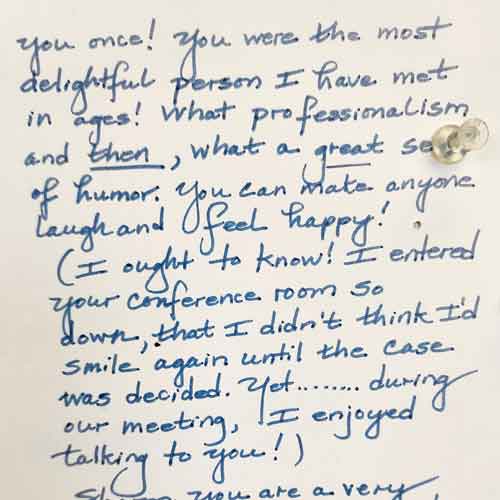 you once! You were the most
delightful person I have met
in ages! What professionalism
and then, what a great se
of humor. You can make anyone
laugh and feel happy!
(I ought to know! I entered
your conference room so
down, that I didn't think I'd
smile again until the case
was decided. Yet........ during
our meeting, I enjoyed
talking to you!)
you are a very